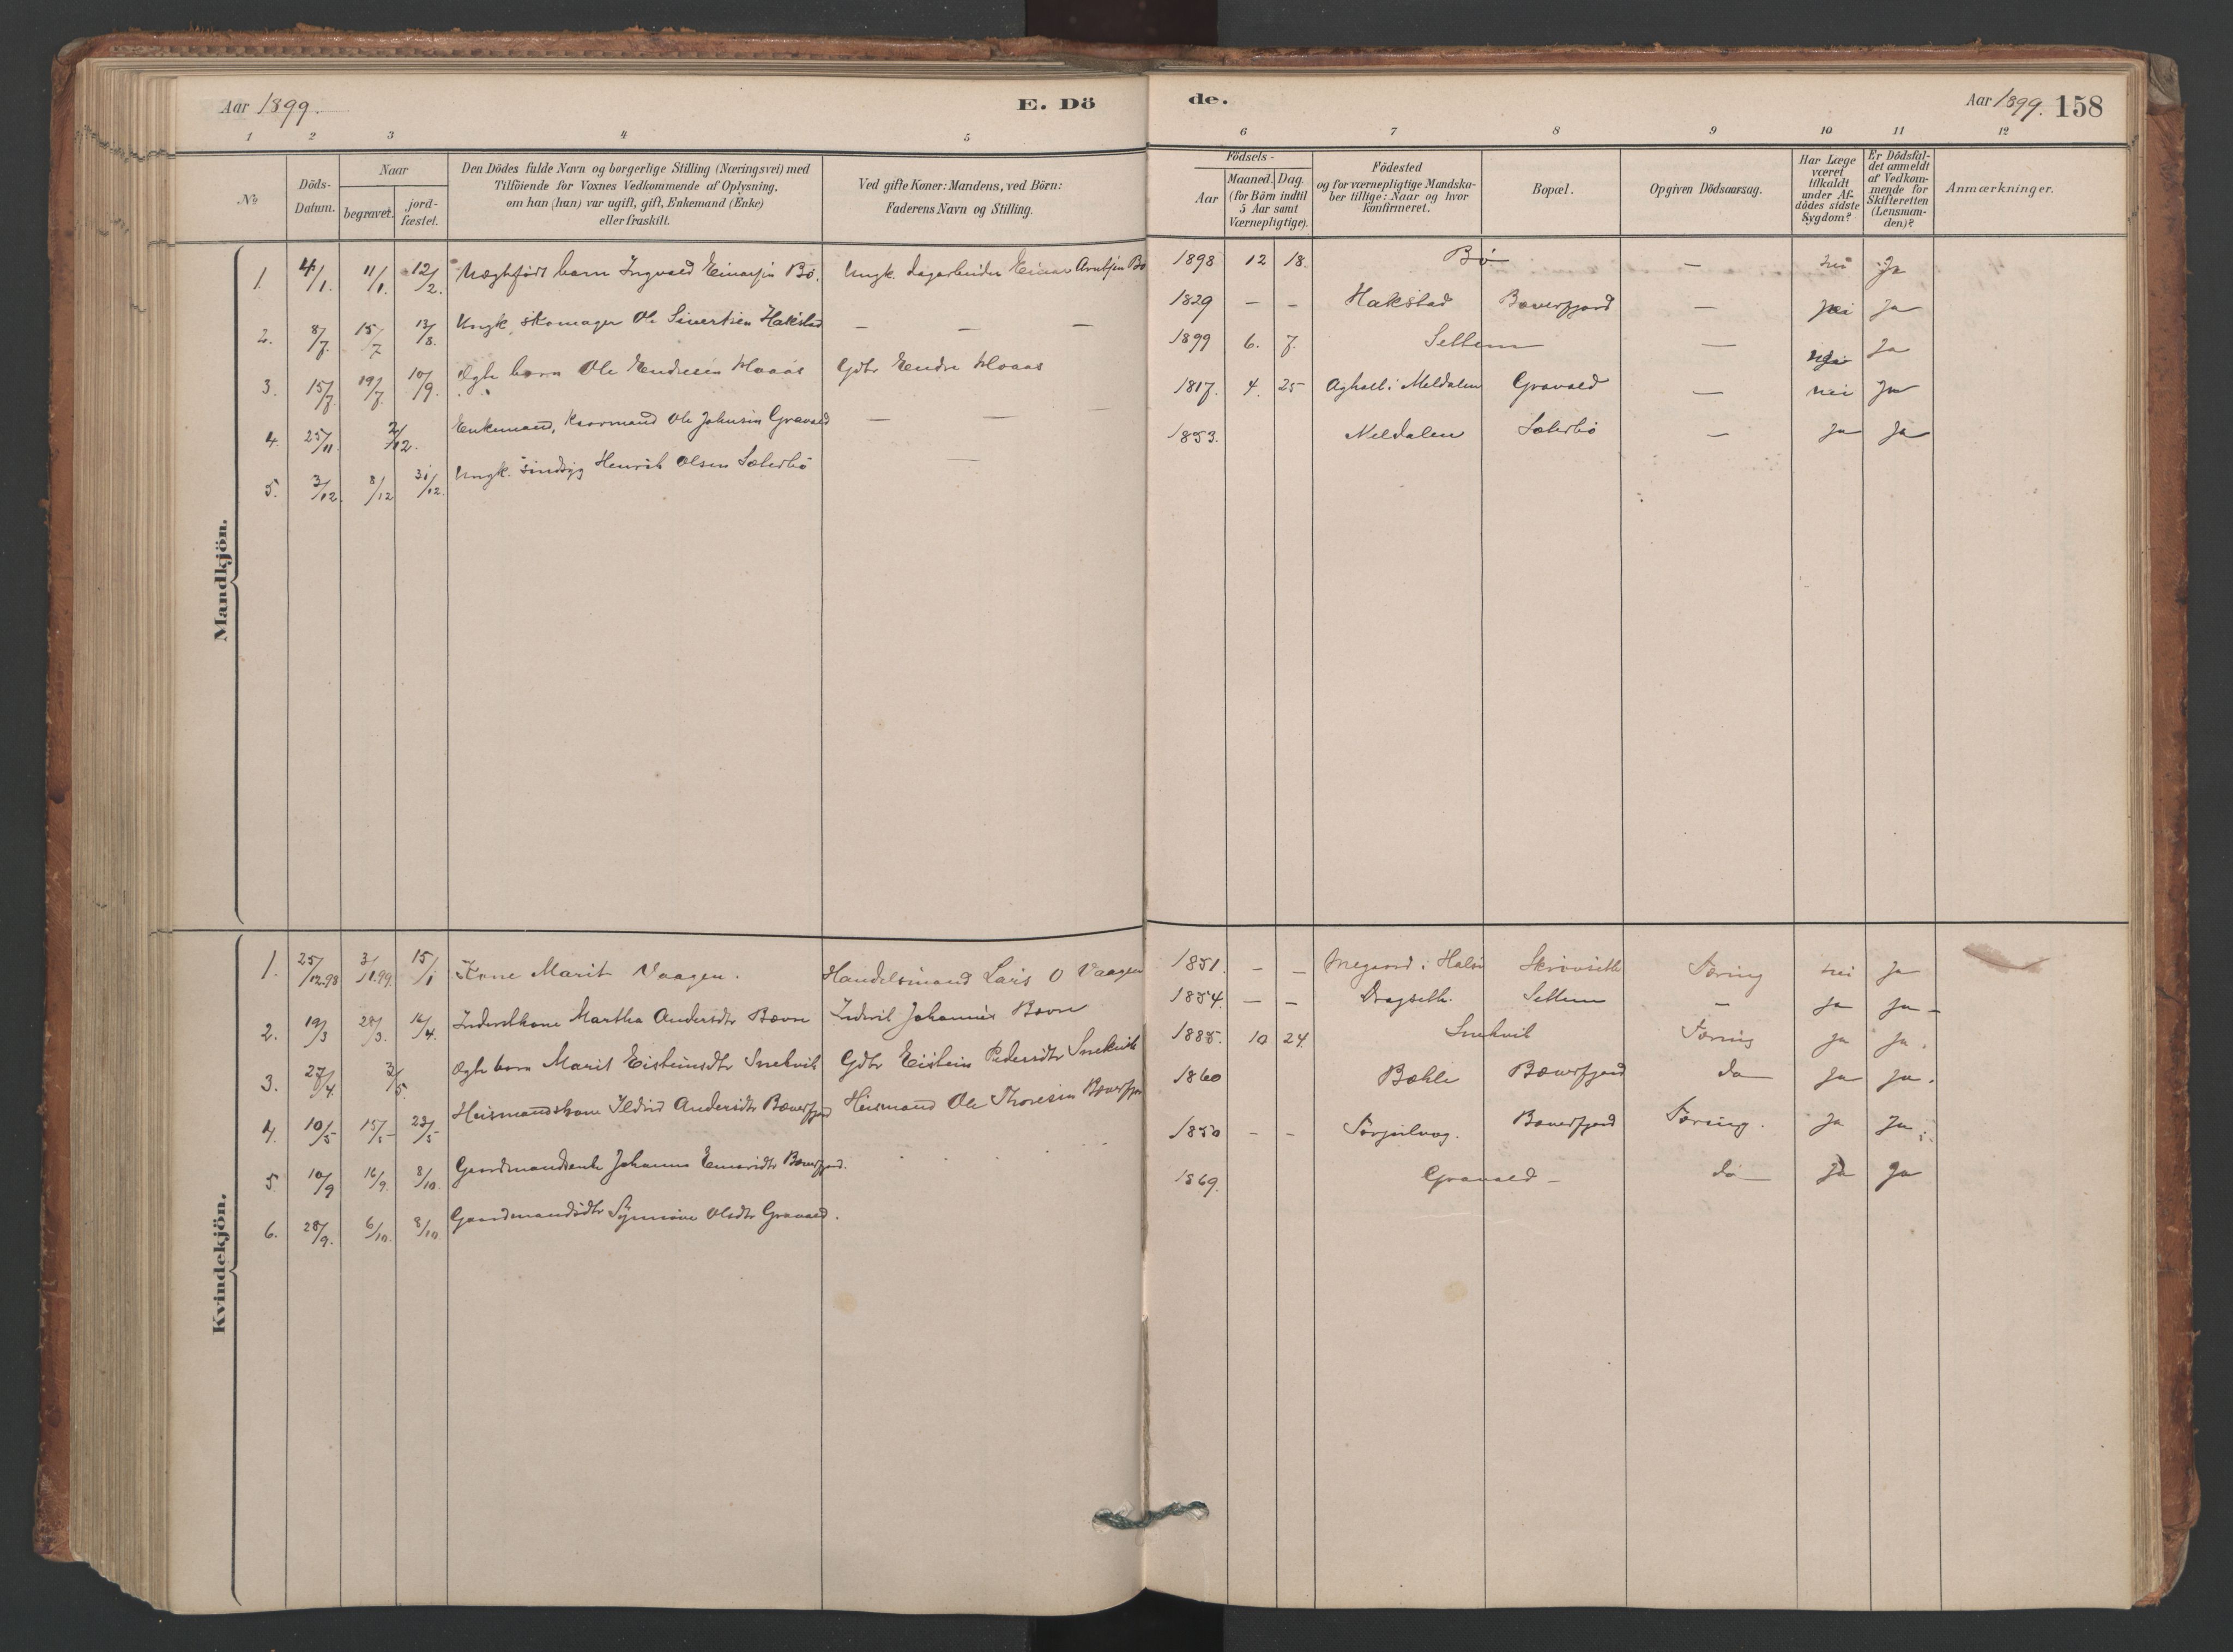 Aar 1899.
E. Dö
de.
Aar 1899. 158
1 2 3 4 5 6 7 8 9 10 11 12
No
Döds-Datum.
Naar
begravet.
jord-fæstet.
Den Dödes fulde Navn og borgerlige Stilling (Næringsvei) med
Tilföiende for Voxnes Vedkommende af Oplysning,
om han (hun) var ugift, gift, Enkemand (Enke)
eller fraskilt.
Ved gifte Koner: Mandens, ved Börn:
Faderens Navn og Stilling.
Födsels-
Aar
Maaned. Dag.
(for Börn indtil
5 Aar samt
Værnepligtige).
Födested
og for værnepligtige Mandska-
ber tillige: Naar og hvor
konfirmeret.
Bopæl.
Opgiven Dödsaarsag.
Har Læge
været
tilkaldt
under Af-
dödes sidste
Sygdom?
Er Dödsfal-
det anmeldt
af Vedkom-
mende for
Skifteretten
(Lensman-
den)?
Anmærkninger.
Mandkjön.
1. 4/1. 11/1. 12/2. Uægtefødt barn Ingvald Einarsen Bö. Ungk. dagarbeider Einar Arntsen Bö 1898 12 18. Bö — nei Ja
2. 8/7. 15/7 13/8. Ungk. skomager Ole Sivertsen Hakstad — — — 1829 — — Hakstad Bæverfjord — nei Ja
3. 15/7. 19/7. 10/9. Ægte barn Ole Endresen Moaas Gdbr Endre Moaas 1899 6. 7. Settem — nei Ja
4. 25/11. 2/12. Enkemand, Kaarmand Ole Johnsen Gravald — — — 1817. 4. 25 i Meldalen Gravald — nei Ja
5. 3/12. 8/12 31/12. Ungk. sindsyg Henrik Olsen Sæterbö — 1853. Meldalen Sæterbö — Ja Ja
Kvindekjön.
1. 25/12.98 3/1.99. 15/1 Kone Marit Vaagen. Handelsmand Lars O Vaagen 1851. — — Megaard i Halse Skrövseth Tæring nei Ja
2. 19/3 28/3. 16/4. Inderstkone Martha Andersdtr Bævre Inderst Johannes Bævre 1854. — — Dragseth. Settem — Ja Ja —
3. 27/4. 2/5. Ægte barn Marit Eisteinsdtr Snekvik Gdbr Eistein Pedersdtr Snekvik 1885. 10 24. Snekvik Tæring Ja Ja.
4. 10/5 15/5 23/5 Huusmandskone Ildrid Andersdtr Bæverfjord Huusmand Ole Thoresen Bæverfjor 1860 Bæhle Bæverfjord do Ja Ja.
5. 10/9 16/9. 8/10. Gaardmandsenke Johanna Bæverfjord. 1850 — — Bæverfjord Tæring. Ja Ja
6. 28/9. 6/10. 8/10 Gaardmandsdtr Synnöve Olsdtr Gravald. 1869. Gravald — do Ja Ja